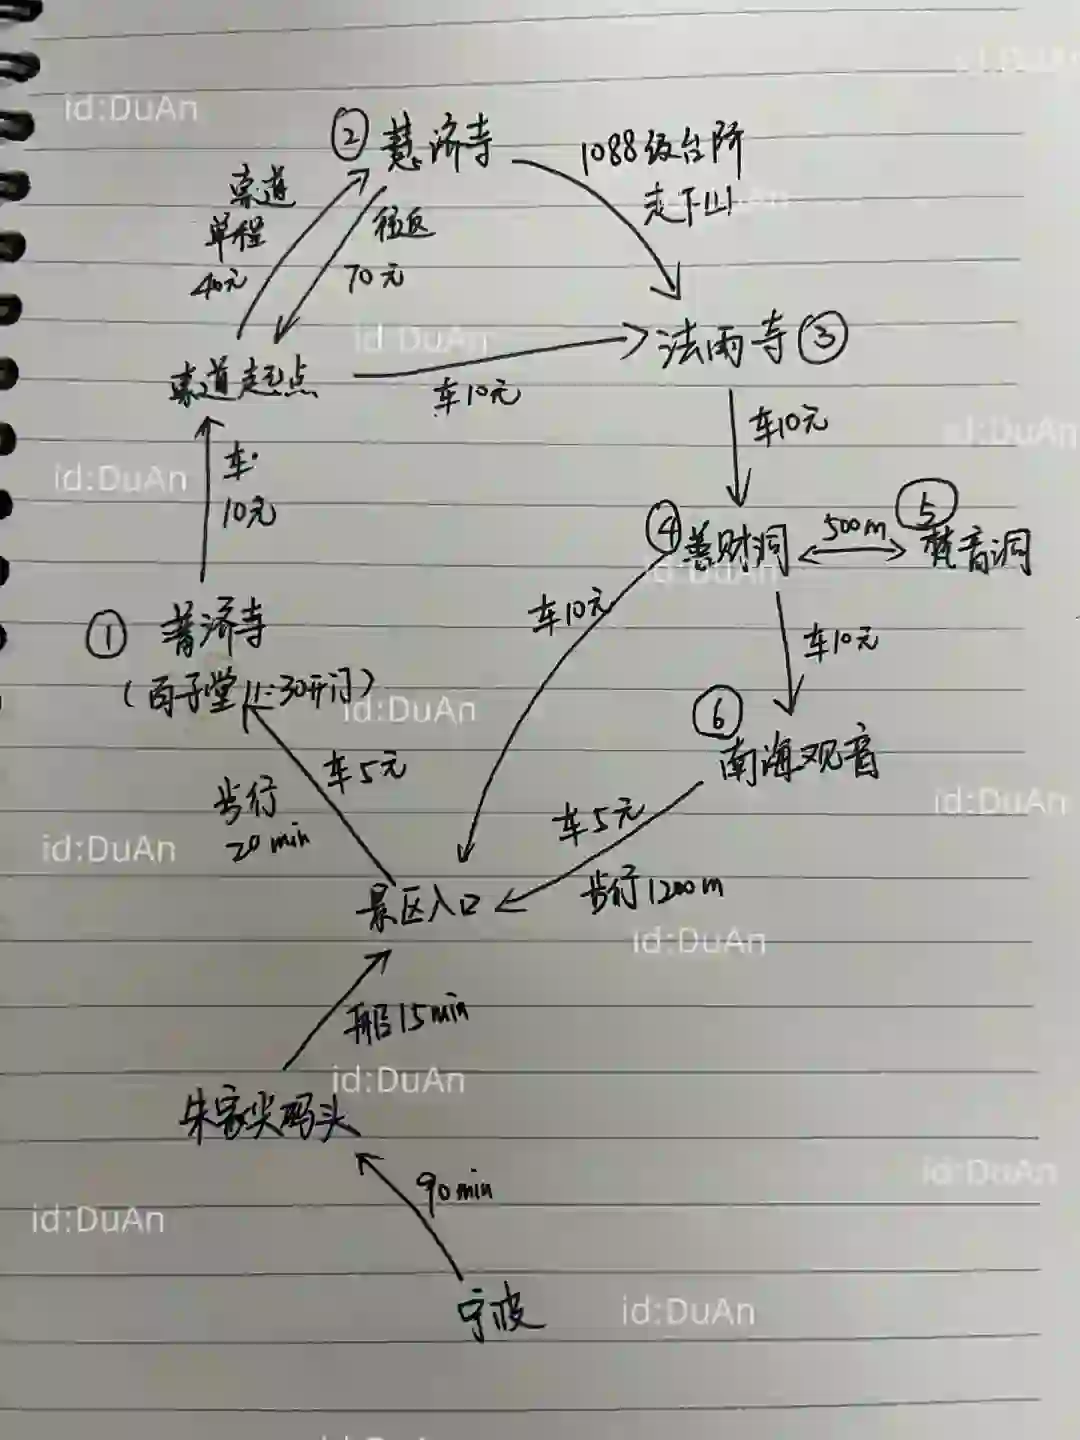 id:DuAn
② 慧济寺
1088级台阶
走下山
索道
单程
40元
往返
70元
id:DuAn
索道起点
车10元
法雨寺 ③
车10元
id:DuAn
id:DuAn
车
10元
④ 善财洞
500m
⑤
梵音洞
id:DuAn
车10元
车10元
① 普济寺
(百子堂 11:30开门)
id:DuAn
⑥
南海观音
车5元
步行
20min
id:DuAn
id:DuAn
车5元
步行1200m
景区入口
id:DuAn
船15min
id:DuAn
朱家尖码头
90min
id:DuAn
id:DuAn
宁波
id:DuAn